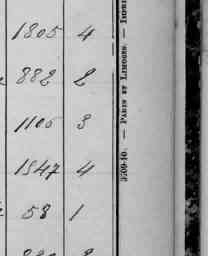 1805 4
882 2
1106 3
1547 4
58 1
3509-10. — PARIS ET LIMOGES. —